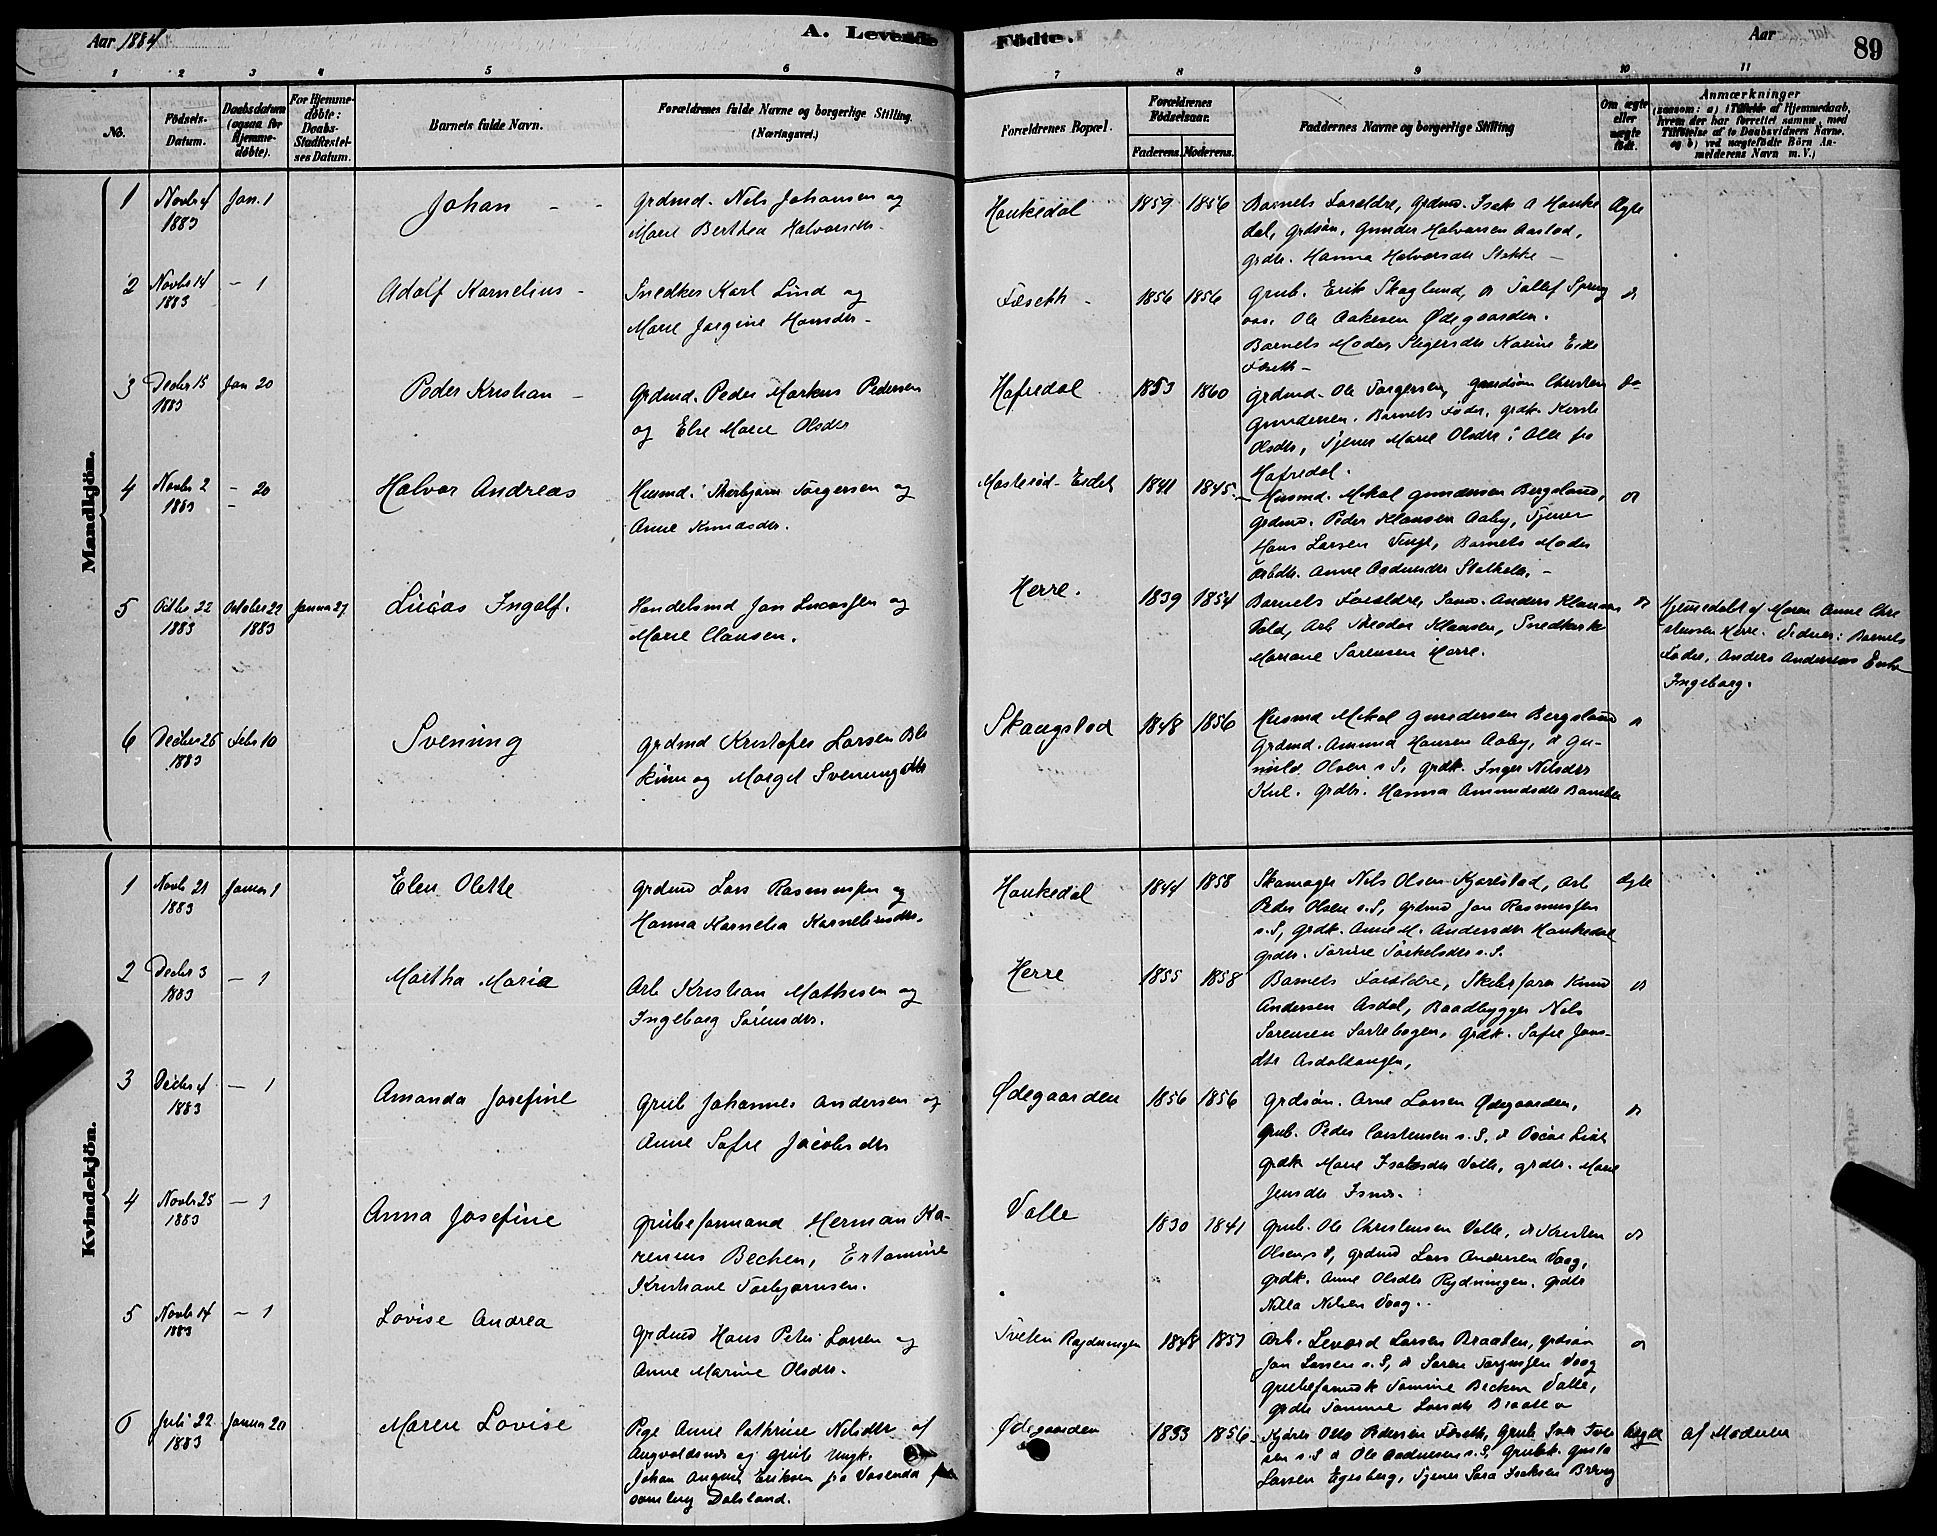 Aar 1884
A. Levende
Födte.
Aar
89
1 2 3 4 5 6 7 8 9 10 11
No.
Födsels-
Datum.
Daabsdatum
(ogsaa for
Hjemme-
døbte).
For Hjemme-
døbte:
Daabs-
Stadfæstel-
ses Datum.
Barnets fulde Navn.
Forældrenes fulde Navne og borgerlige Stilling.
(Næringsvei.)
Forældrenes Bopæl.
Forældrenes
Fødselsaar.
Faderens. Moderens.
Faddernes Navne og borgerlige Stilling
Om ægte
eller
uægte
født.
Anmærkninger
(saasom: a) i Tilfælde af Hjemmedaab,
hvem der har forrettet samme, med
Tilføielse af to Daabsvidners Navne,
og b) ved uægtefødte Börn An-
melderens Navn m. V.)
Mandkjön.
1 Novbr 4 1883 Jan. 1
Johan
Grdmd. Nils Johansen og
Marie Berthea Halvorsdtr.
Haukedal 1859 1856
Barnets Forældre, Grdmd. Isak A Hauke
dal, Grdsøn. Gunder Halvorsen Aastad,
Grdtr. Hanna Halvorsdtr Stokke
Ægte
2 Novbr 14 1883 - 1
Adolf Kornelius
Snedker Karl Lind og
Marie Jørgine Hansdtr
Fosseth 1856 1856
Grub. Erik Skoglund, Tollef
Ole Aakesen Ødegaarden.
Barnets Moder, Karine
3 Decbr 15 1883 Jan 20
Peder Kristian
Grdmd. Peder Markus Pedersen
og Else Marie Olsdtr
Hafredal 1853 1860
Grdmd. Ole Torgersen, Grdsøn Christen
Gundersen. Barnets Fader, Grdk. Kirsti
Olsdtr, Tjener Marie Olsdtr: Alle fra
Hafredal.
4 Novbr 2 1883 - 20
Halvor Andreas
Husmd. Thorbjørn Torgersen og
Anne Knudsdtr.
Eidet 1841 1845
Husmd. Mikal Gundersen Bergsland,
Grdmd. Peder Klausen Aaby, Tjener
Hans Larsen Tveyt, Barnets Moder
Anne
5 Octbr 22 1883 October 22 1883 Januar 27
Lucas Ingolf.
Handelsmd Jan Lucassen og
Marie Clausen.
Herre. 1839 1854
Barnets Forældre, Anders Klausen
Vold, Arb Theodor Klausen, Snedkerk
Mariane Sørensen Herre.
Hjemmedøbt af Maren Anne Chri
stensen Herre. Vidner: Barnets
Fader, Anders Andersens Enke
Ingeborg.
6 Decbr 26 1883 Febr 10
Svenung
Grdmd Kristofer Larsen
og Marget Svenungsdtr
Skougstad 1848 1856
Husmd Mikal Gundersen Bergsland
Grdmd. Amund Hansen Aaby, Gu-
nild Olsen s. S, Grdk. Inger Nilsdtr
Grdtr. Hanna Amundsdtr Bamble
Kvindekjön.
1 Novb 21 1883 Januar 1
Elen Olette
Grdmd Lars Rasmussen og
Hanna Karnelia Karneliusdtr.
Haukedal 1844 1858
Skomager Nils Olsen Kjørestad, Arb
Peder Olsen s. S, Grdmd Jan Rasmussen
s. S, Grdk. Anne M. Andersdtr Haukedal
Grdtr. Torine Torkelsdtr s. S.
ægte
2 Decbr 3 1883 - 1
Martha Maria
Arb Kristian Mathisen og
Ingeborg Sørensdtr.
Herre 1855 1858
Barnets Forældre, Skibsfører Knud
Andersen Asdal, Baadbygger Nils
Sørensen Sortebogen, Grdk. Sofie Jans-
dtr Asdaltangen,
3 Decbr 4 1883 - 1
Amanda Josefine
Grub Johannes Andersen og
Anne Sofie Jacobsdtr
Ødegaarden 1856 1856
Grdsøn. Arne Larsen Ødegaarden,
Grub. Peder Carstensen s. S,
Grdk Marie Isaksdtr Valle, Grdtr. Marie
Jensdtr
4 Novbr 25 1883 - 1
Anna Josefine
Grubeformand Herman Ka-
renius Becken, Ertomine
Kristiane Torbjørnsen.
Valle 1830 1841
Grub. Ole Christensen Valle, Karsten
Olsen s S, Grdmd Lars Andersen Vaag,
Grdk. Anne Olsdtr Rydningen, Grdtr
Nilla Nilsen Vaag.
5 Novbr 14 1883 - 1
Lovise Andrea
Grdmd Hans Peter Larsen og
Anne Marine Olsdtr.
Tveten Rydningen 1848 1857
Arb. Levard Larsen Braaten, Grdsøn
Jan Larsen s. S, Søren Torgersen Vaag
Tomine Becken Valle,
Grdtr Tomine Larsdtr Braaten
6 Juli 22 1883 Januar 20
Maren Lovise
Pige Anne Cathrine Nilsdtr af
og Grub Ungk.
Johan August Eriksen fra
Dalsland.
Ødegaarden 1853 1856
Otto Pedersen Fosseth, Grub Iver Iver
sen s. S Ole Aadnesen s. S, Grubk.
Larsen Egesberg, Tjener Sara Isaksen
Uægte
af Moderen